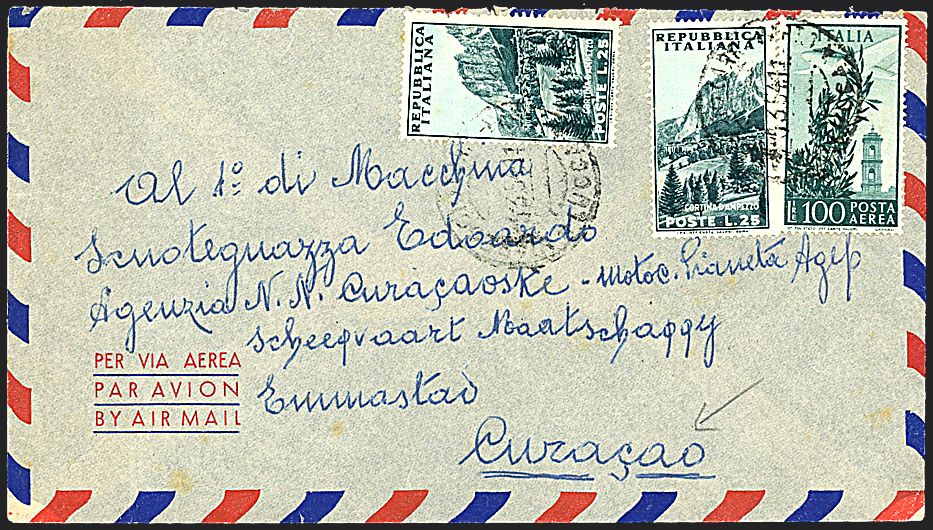 REPUBBLICA
ITALIANA
POSTE L.25
REPUBBLICA
ITALIANA
CORTINA D'AMPEZZO
POSTE L.25
ITALIA
LIRE 100 POSTA
AEREA
LUCCA
Al 1º di Macchina
Scuoteguazza Edoardo
Agenzia N.N. Curaçaoske - motoc. Pianeta Agip
Scheepvaart Maatschappy
PER VIA AEREA
PAR AVION
BY AIR MAIL
Emmastad
Curaçao